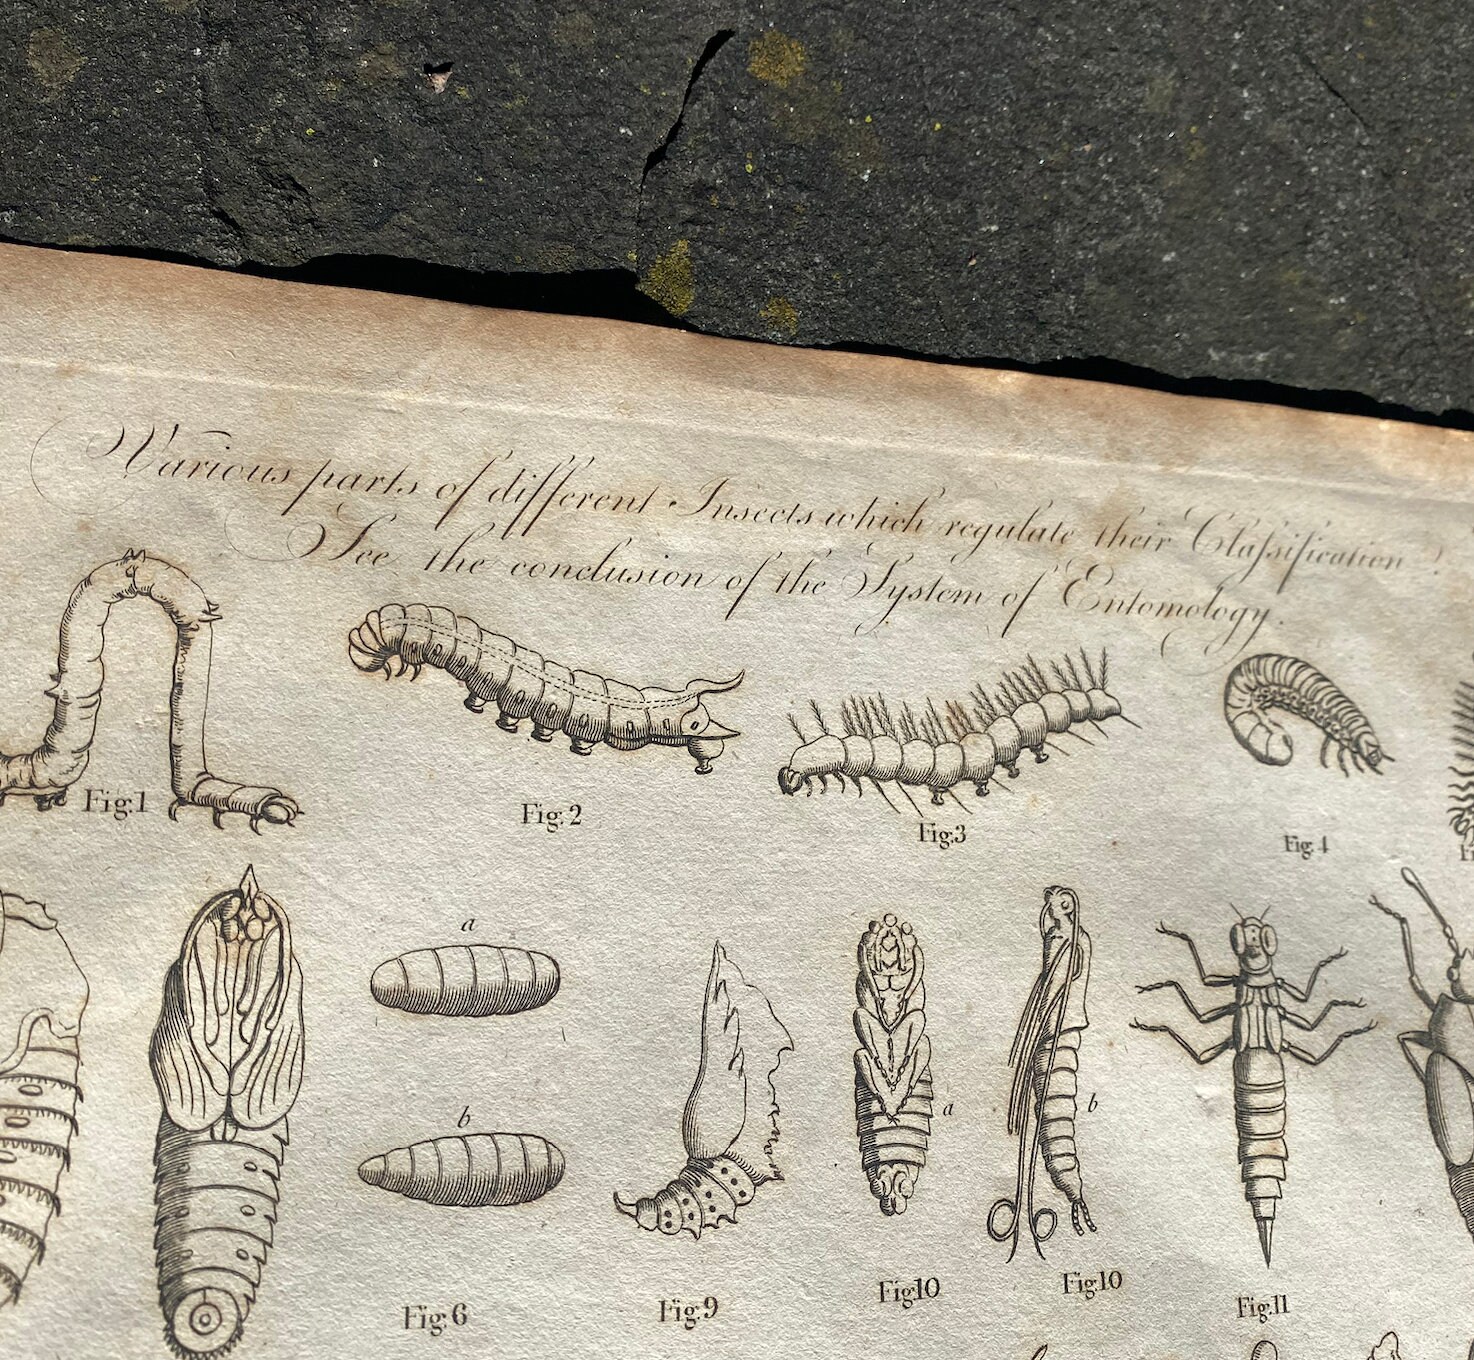 Various parts of different Insects which regulate their Claſsification
See the conclusion of the System of Entomology.
Fig.1
Fig.2
Fig.3
Fig.4
a
b
a
b
Fig.6
Fig.9
Fig.10
Fig.10
Fig.11